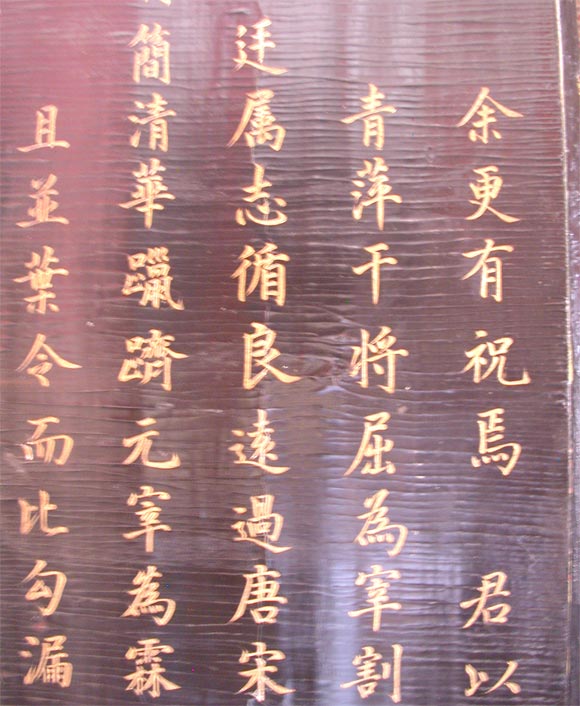 余更有祝焉 君以
青萍干将屈為宰割
廷属志循良遠過唐宋
簡清華躐躋元宰為霖
且並葉令而比勾漏